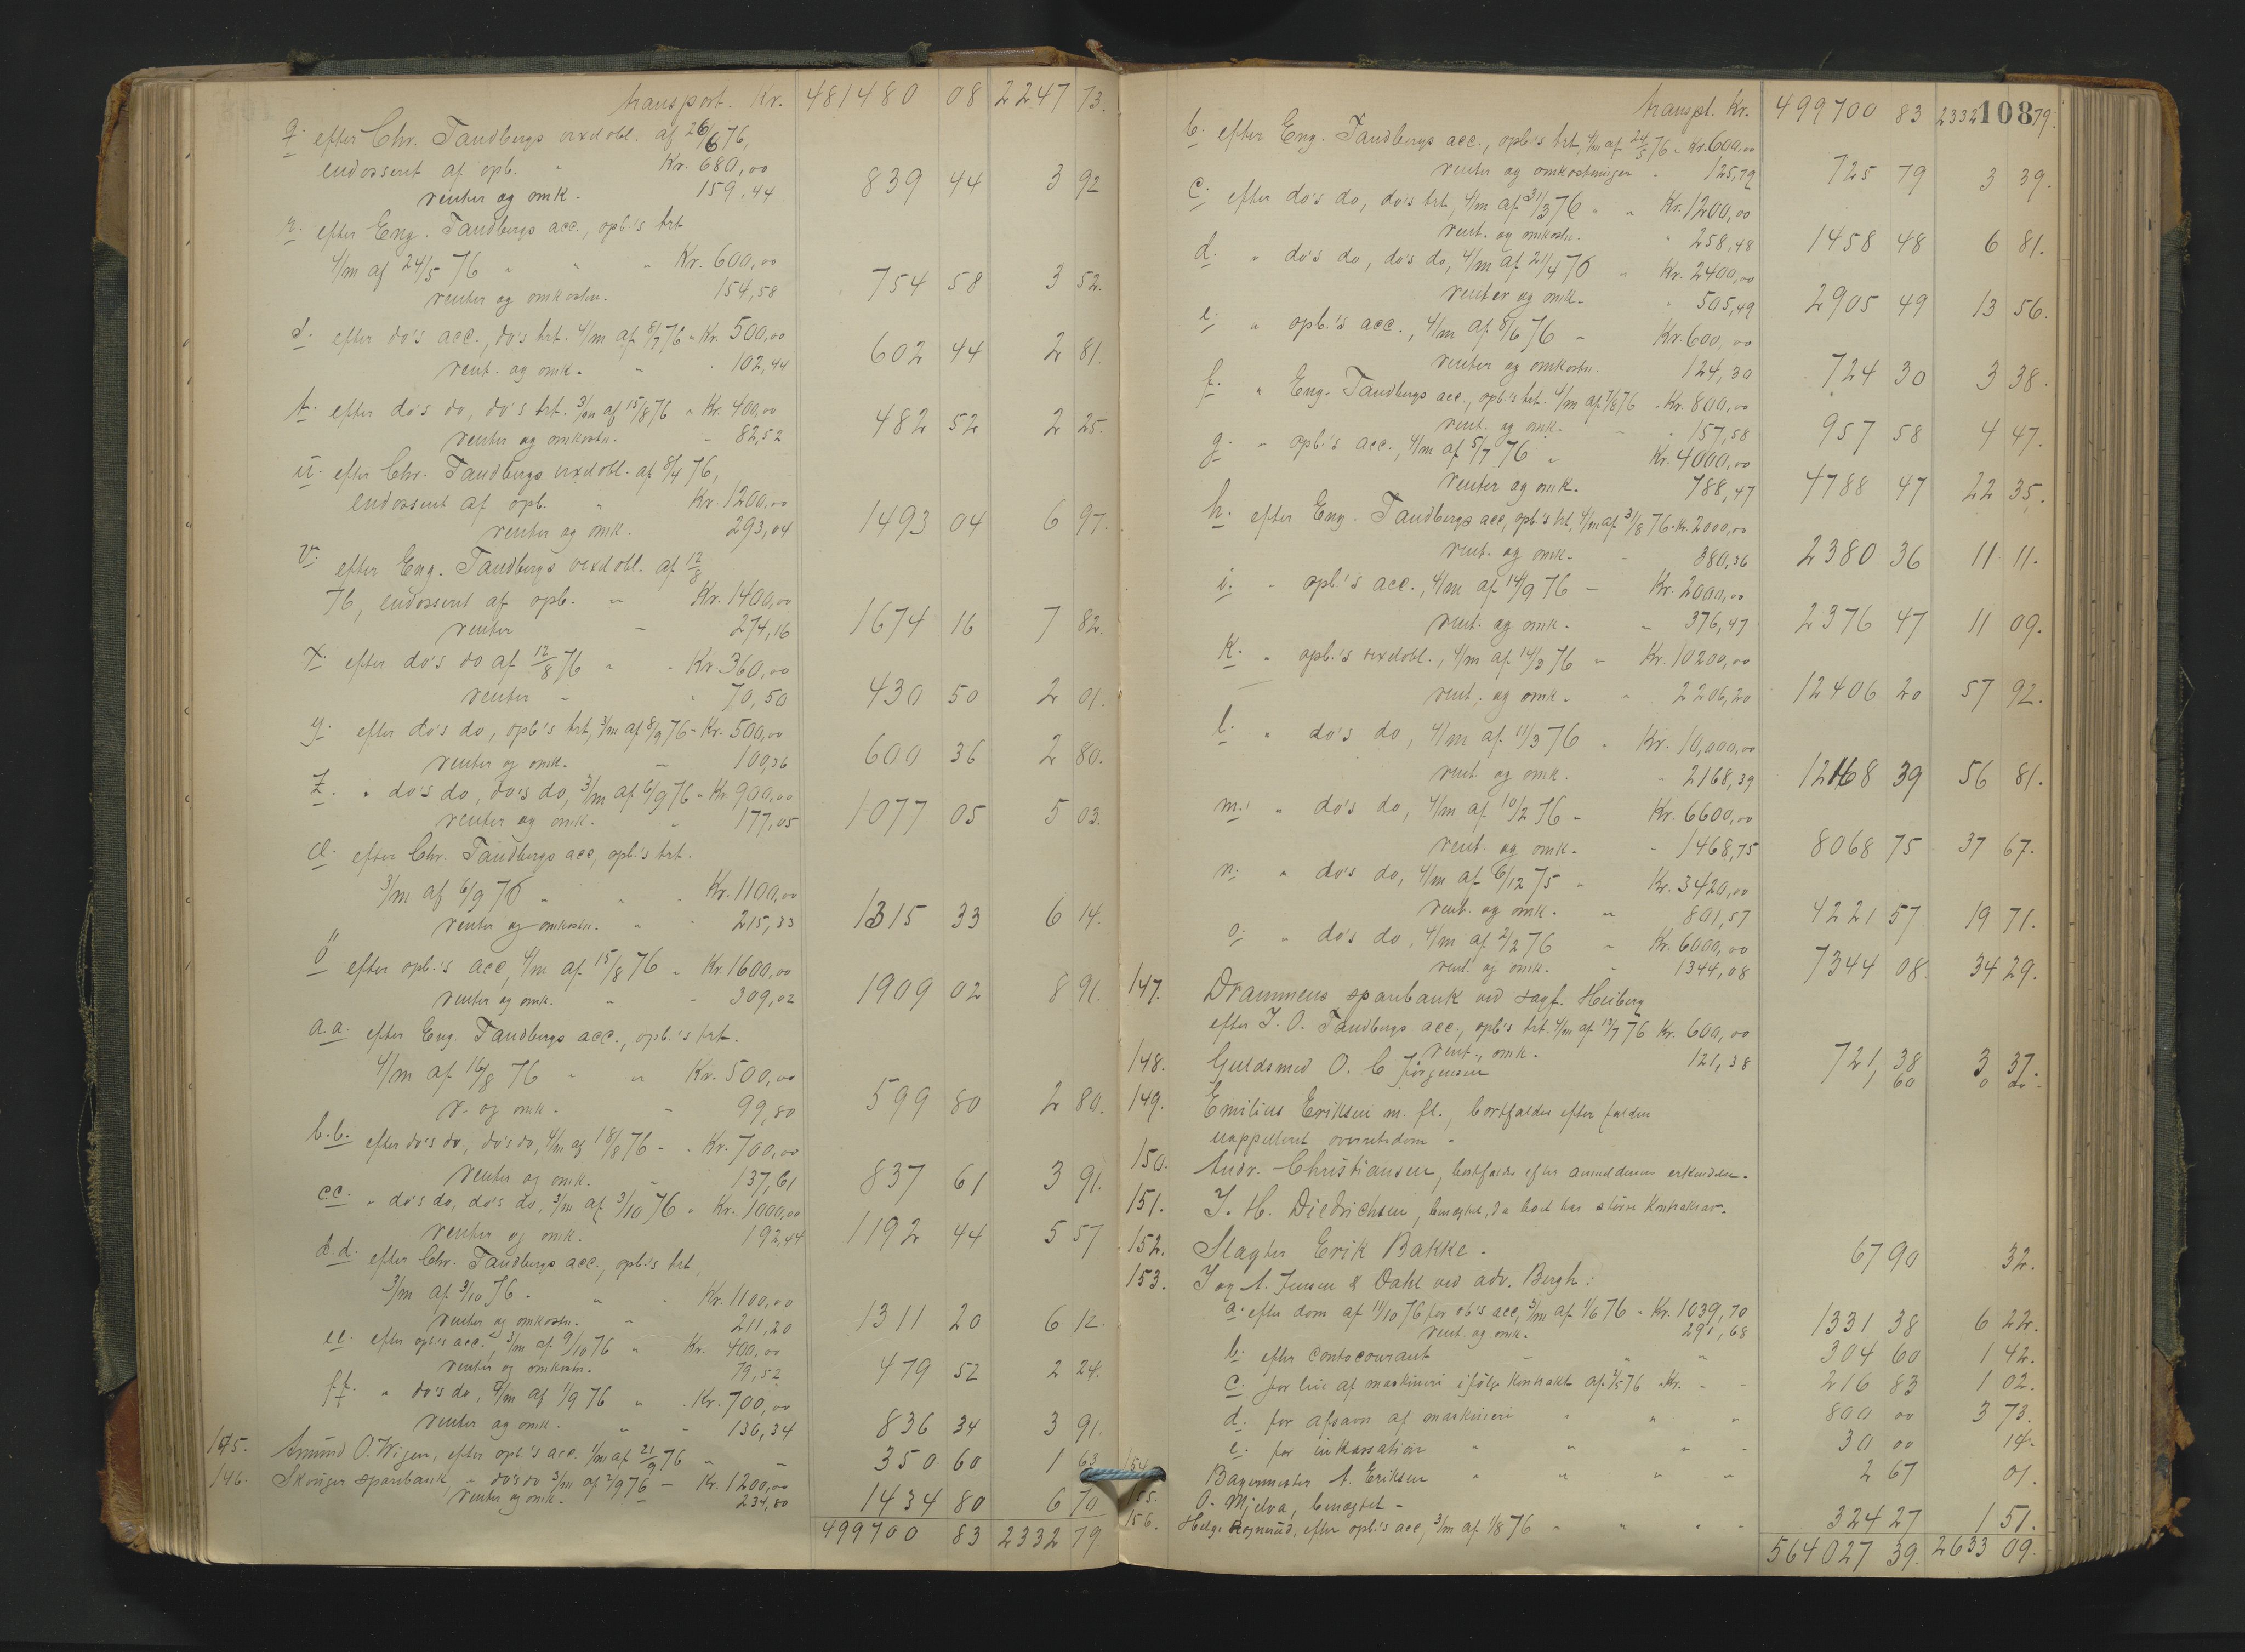 transport. Kr. 481480 08 2247 73.
q. efter Chr. Tandbergs vexelobl. af 26/6 76,
endosseret af opb. " Kr. 680,00
renter og omk. 159,44 839 44 3 92
r. efter Eng. Tandbergs acc., opb.'s trt
4/m af 24/5 76 " " " Kr. 600,00
renter og omkostn. 154,58 754 58 3 52.
s. efter do's acc., do's trt. 4/m af 8/7 76 " Kr. 500,00
rent. og omk. " " 102,44 602 44 2 81.
t. efter do's do, do's trt. 3/m af 15/8 76 " Kr. 400,00
renter og omkostn. " 82,52 482 52 2 25.
u. efter Chr. Tandbergs vexelobl. af 8/4 76,
endosseret af opb. " Kr. 1200,00
renter og omk. 293,04 1493 04 6 97.
v. efter Eng. Tandbergs vexelobl. af 12/8
76, endosseret af opb. " Kr. 1400,00
renter " 274,16 1674 16 7 82.
x. efter do's do af 12/8 76 " " Kr. 360,00
renter " " 70,50 430 50 2 01.
y. efter do's do, opb's trt, 3/m af 8/9 76 " Kr. 500,00
renter og omk. " 100,36 600 36 2 80.
z. " do's do, do's do, 3/m af 6/9 76 " Kr. 900,00
renter og omk. " 177,05 1077 05 5 03.
efter Chr. Tandbergs acc, opb.'s trt.
3/m af 6/9 76 " " " Kr. 1100,00
renter og omkostn. " " 215,33 1315 33 6 14.
ö efter opb.'s acc, 4/m af 15/8 76 " Kr. 1600,00
renter og omk. " " 309,02 1909 02 8 91.
a.a. efter Eng. Tandbergs acc., opb.'s trt.
4/m af 16/8 76 " " Kr. 500,00
r. og omk. " 99,80 599 80 2 80.
b.b. efter do's do, do's do, 4/m af 18/8 76 " " Kr. 700,00
renter og omk. " 137,61 837 61 3 91.
c.c. " do's do, do's do, 3/m af 3/10 76 " Kr. 1000,00
renter og omk. 192,44 1192 44 5 57
d.d. efter Chr. Tandbergs acc., opb.'s trt,
3/m af 3/10 76 " " " Kr. 1100,00
renter og omkostn. " 211,20 1311 20 6 12.
e.e. efter opb.'s acc., 3/m af 9/10 76 " Kr. 400,00
renter og omkostn. 79,52 479 52 2 24.
f.f. " do's do, 4/m af 1/9 76 " " Kr. 700,00
renter og omk. " " 136,34 836 34 3 91.
145. Amund O. Wigen, efter opb.'s acc. 1/m af 21/9 76 " " 350 60 1 63
146. Skouger sparebank, " do's do 3/m af 2/9 76 " Kr. 1200,00
renter og omk. " 234,80 1434 80 6 70
499700 83 2332 79.
108
transpt. Kr. 499700 83 2332 79.
b. efter Eng. Tandbergs acc., opb.'s trt, 4/m af 24/5 76 " Kr. 600,00
renter og omkostninger " 125,79 725 79 3 39.
c. efter do's do, do's trt, 4/m af 31/3 76 " " Kr. 1200,00
rent. og omkostn. " 258,48 1458 48 6 81.
d. " do's do, do's do, 4/m af 21/4 76 " Kr. 2400,00
renter og omk. " 505,49 2905 49 13 56.
e. " opb.'s acc., 4/m af 8/6 76 " Kr. 600,00
renter og omkostn. 124,30 724 30 3 38.
f. " Eng. Tandbergs acc., opb.'s trt. 4/m af 7/8 76 " Kr. 800,00
rent. og omk. " " 157,58 957 58 4 47.
g. " opb.'s acc., 4/m af 5/7 76 " Kr. 4000,00
renter og omk. 788,47 4788 47 22 35.
h. efter Eng. Tandbergs acc, opb.'s trt, 4/m af 31/8 76 " Kr. 2000,00
rent. og omk. " 380,36 2380 36 11 11.
i. " opb.'s acc., 4/m af 14/9 76 " Kr. 2000,00
rent. og omk. " 376,47 2376 47 11 09.
k. " opb.'s vexelobl., 4/m af 14/3 76 " Kr. 10200,00
rent. og omk. " 2206,20 12406 20 57 92.
l. " do's do, 4/m af 11/3 76 " Kr. 10,000,00
rent. og omk. " 2168,39 12168 39 56 81.
m. " do's do, 4/m af 10/2 76 " Kr. 6600,00
rent. og omk. " 1468,75 8068 75 37 67.
n. " do's do, 4/m af 6/12 75 " Kr. 3420,00
rent. og omk. " 801,57 4221 57 19 71.
o. " do's do, 4/m af 2/2 76 " Kr. 6000,00
rent. og omk. " 1344,08 7344 08. 34 29.
147. Drammens sparebank ved sagf. Heiberg
efter J. O. Tandbergs acc., opb's trt. 4/m af 13/7 76 Kr. 600,00
rent., omk. 121,38 721,38 3 37.
148. Guldsmed O. C Jörgensen 1 60 0 00
149. Emilius Eriksen m. fl., bortfalder efter falden
uappelleret overretsdom "
150. Andr. Christiansen, bortfalder efter anmelderens erkjendelse.
151. J. H. Diedrichsen, benegtet, da boet har större Kontrakrav.
152. Slagter Erik Bakke. 67 90 32.
153. J og A. Jensen & Dahl ved adv. Bergh:
a. efter dom af 11/10 76 for ob's acc, 3/m af 1/6 76 " Kr. 1039,70
rent. og omk. 291,68 1331 38 6 22.
b. efter contocourant " " " 304 60 1 42.
c. for leie af maskineri ifölge Kontrakt af 4/5 76 " Kr. " " 216 83 1 02.
d. for afsavn af maskineri " " " 800 00 3 73.
e. for inkassation " " " " 30 00 14.
154 Bagermester A. Eriksen " " " " 2 67 01.
155. O. Mjelva, benegtet "
156. Helge Rognerud, efter opb.'s acc, 3/m af 1/8 76 " " " " 324 27 1 51.
564027 39. 2633 09.